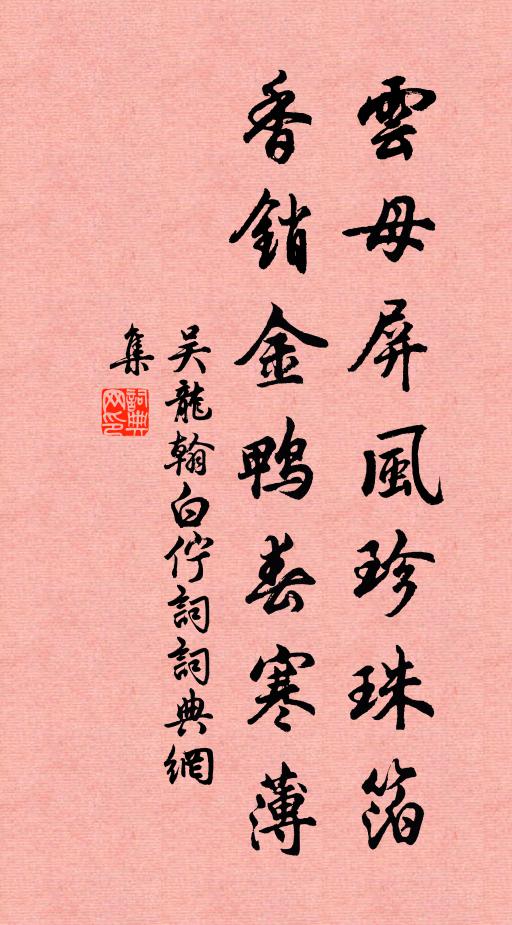 雲母屏風珍珠箔
香銷金鴨春寒薄
吴龍翰白佇詞詞典網
集
詞典
網印